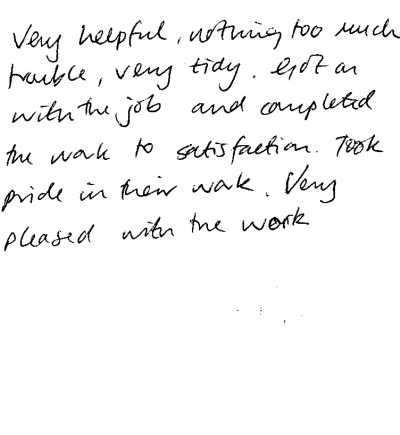 Very helpful, nothing too much
trouble, very tidy. Got on
with the job and completed
the work to satisfaction. Took
pride in their work. Very
pleased with the work